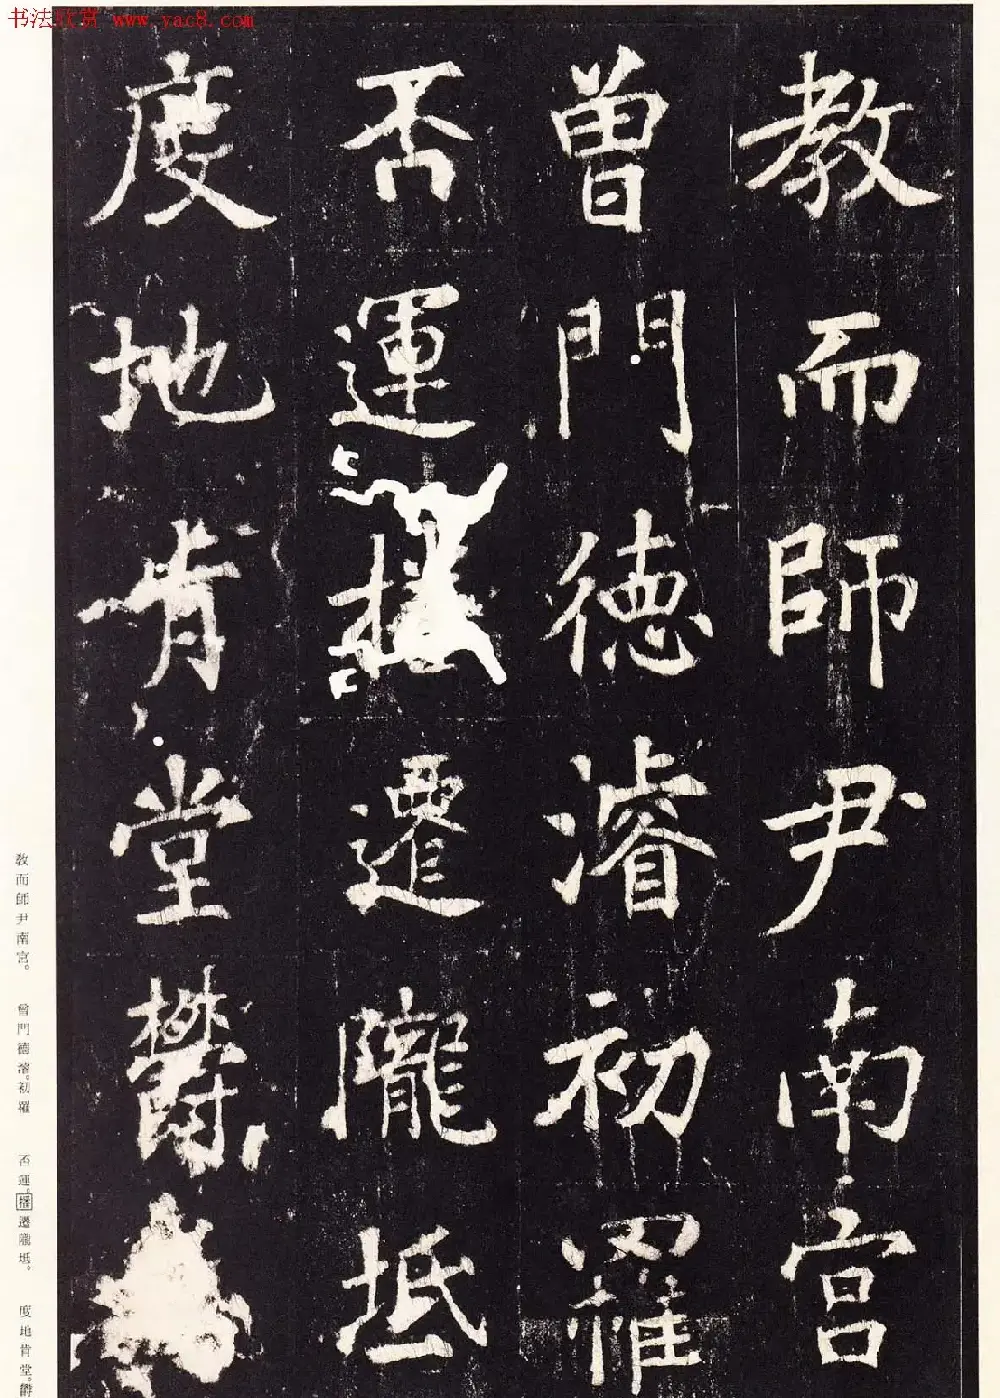 书法欣赏 www.yac8.com
教而師尹南宮
曾門德濬初羅
否運播遷隴坻
度地肯堂欝
教而師尹南宮。 曾門德濬。初羅 否運。播遷隴坻。 度地肯堂。欝